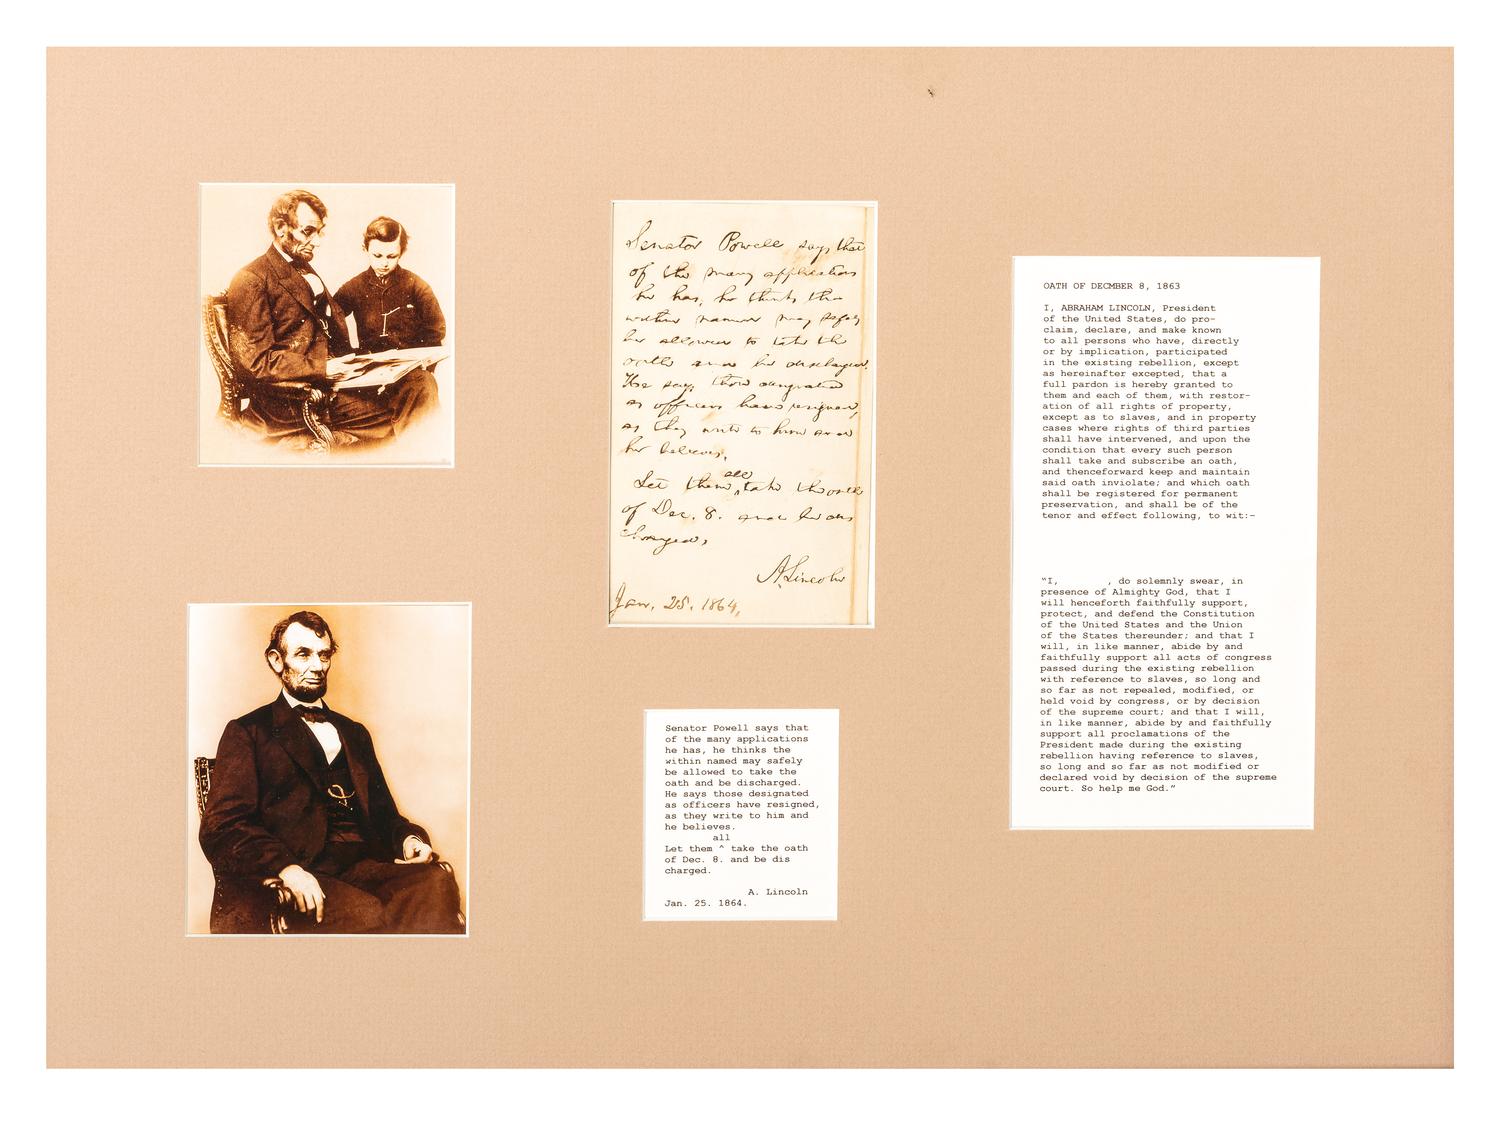 Senator Powell says that
of the many applications
he has, he thinks the
within named may safely
be allowed to take the
oath and be discharged.
He says those designated
as officers have resigned,
as they write to him and
he believes.
all
Let them ^ take the oath
of Dec. 8. and be dis
charged.
A. Lincoln
Jan. 25. 1864.
Senator Powell says that
of the many applications
he has, he thinks the
within named may safely
be allowed to take the
oath and be discharged.
He says those designated
as officers have resigned,
as they write to him and
he believes.
all
Let them ^ take the oath
of Dec. 8. and be dis
charged.
A. Lincoln
Jan. 25. 1864.
OATH OF DECMBER 8, 1863
I, ABRAHAM LINCOLN, President
of the United States, do pro-
claim, declare, and make known
to all persons who have, directly
or by implication, participated
in the existing rebellion, except
as hereinafter excepted, that a
full pardon is hereby granted to
them and each of them, with restor-
ation of all rights of property,
except as to slaves, and in property
cases where rights of third parties
shall have intervened, and upon the
condition that every such person
shall take and subscribe an oath,
and thenceforward keep and maintain
said oath inviolate; and which oath
shall be registered for permanent
preservation, and shall be of the
tenor and effect following, to wit:-
"I,       , do solemnly swear, in
presence of Almighty God, that I
will henceforth faithfully support,
protect, and defend the Constitution
of the United States and the Union
of the States thereunder; and that I
will, in like manner, abide by and
faithfully support all acts of congress
passed during the existing rebellion
with reference to slaves, so long and
so far as not repealed, modified, or
held void by congress, or by decision
of the supreme court; and that I will,
in like manner, abide by and faithfully
support all proclamations of the
President made during the existing
rebellion having reference to slaves,
so long and so far as not modified or
declared void by decision of the supreme
court. So help me God."